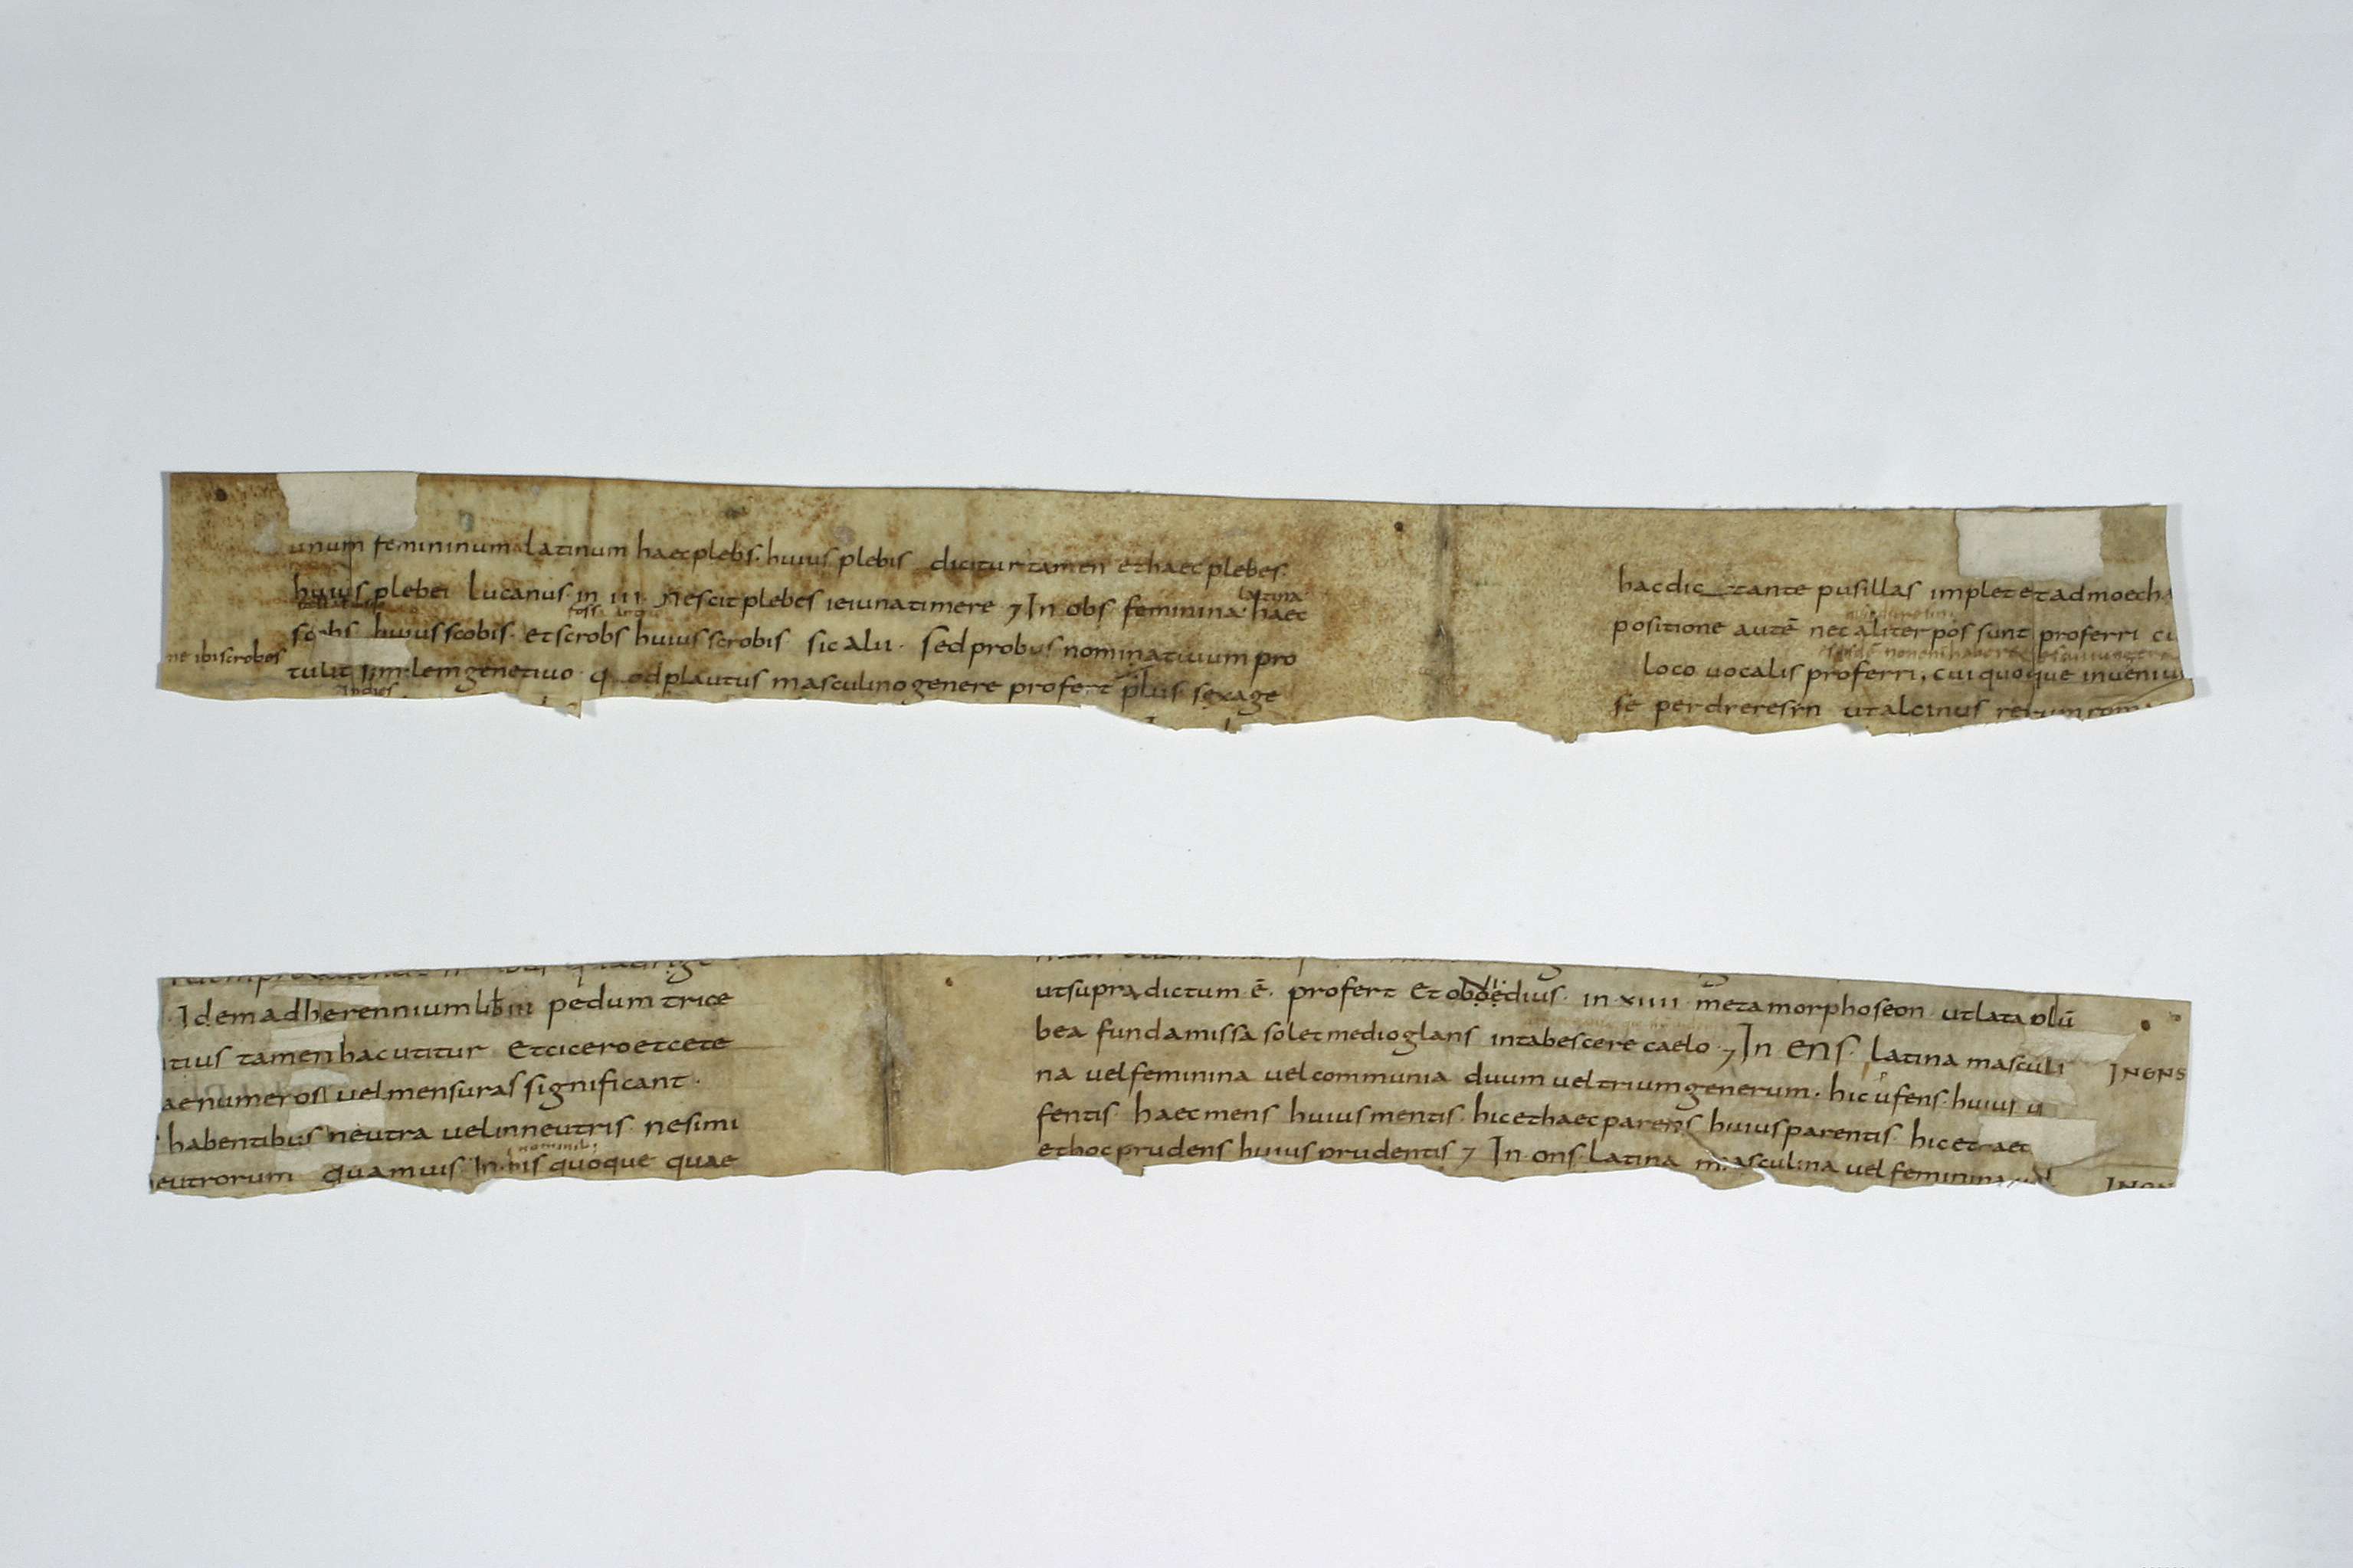 unum femininum latinum haec plebs. huius plebis dicitur tamen et haec plebes.
huius plebei Lucanus in iii. Nescit plebes ieiuna timere 7 In obs feminina haec
latina
scobs huius scobis. et scrobs huius scrobis sic alii. Sed probus nominativum pro
ne ibi scrobes
tulit similem genetivo. quod plautus masculino genere profert plus sexage
hac dic tante pusillas implet et ad moech
positione autē nec aliter pos sunt proferri
loco vocalis proferri, cui quoque inveniu
se perdreresrn ut alcinus rerum roma
Idem ad herennium lib iii pedum trice
itius tamen hac utitur et cicero et cete
ae numeros vel mensuras significant.
habentibus neutra vel in neutris. nesimi
nominib;
eutrorum quamuis. In his quoque quae
ut supra dictum ē. profert et oboedius. in xiiii metamorphoseon ut lata plū
bea funda missa solet medio glans intabescere caelo. 7 In ens. latina masculi
INENS
na vel feminina vel communia duum vel trium generum. hic ufens. huius u
fentis haec mens huius mentis. hic et haec parens huius parentis. hic et haec
et hoc prudens huius prudentis 7 In ons. latina masculina vel feminina
INON